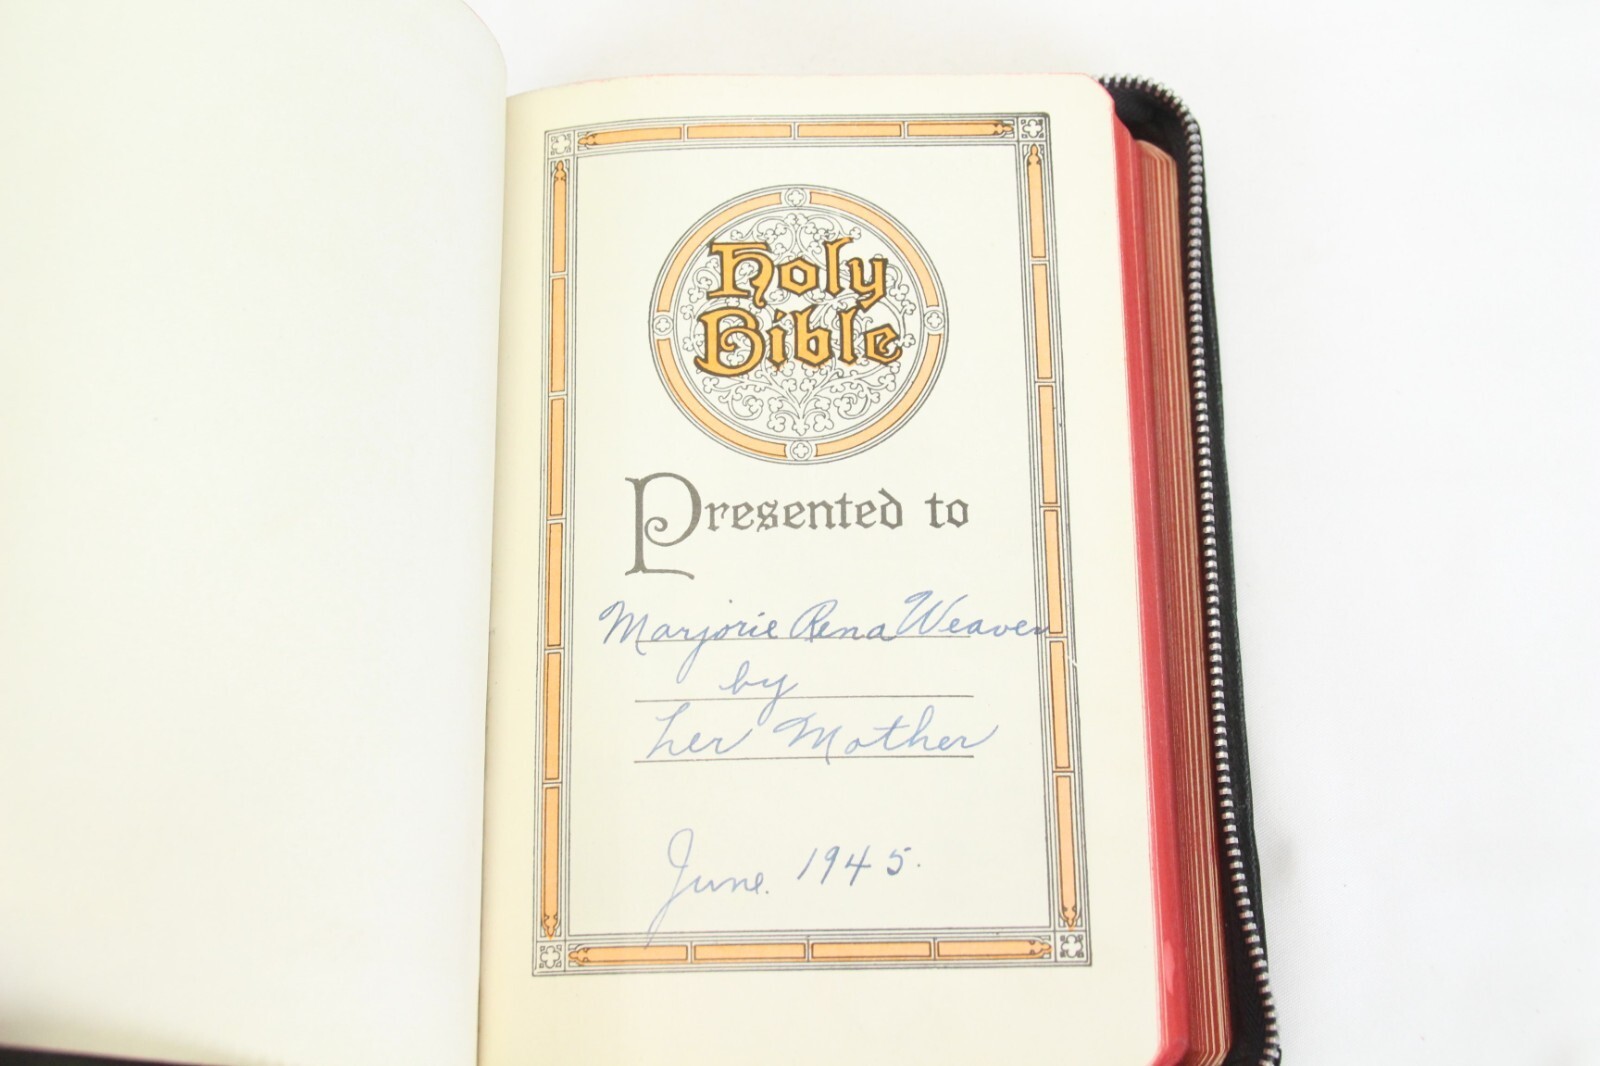 Holy
Bible
Presented to
Marjorie Rena Weaver
by
her Mother
June. 1945.